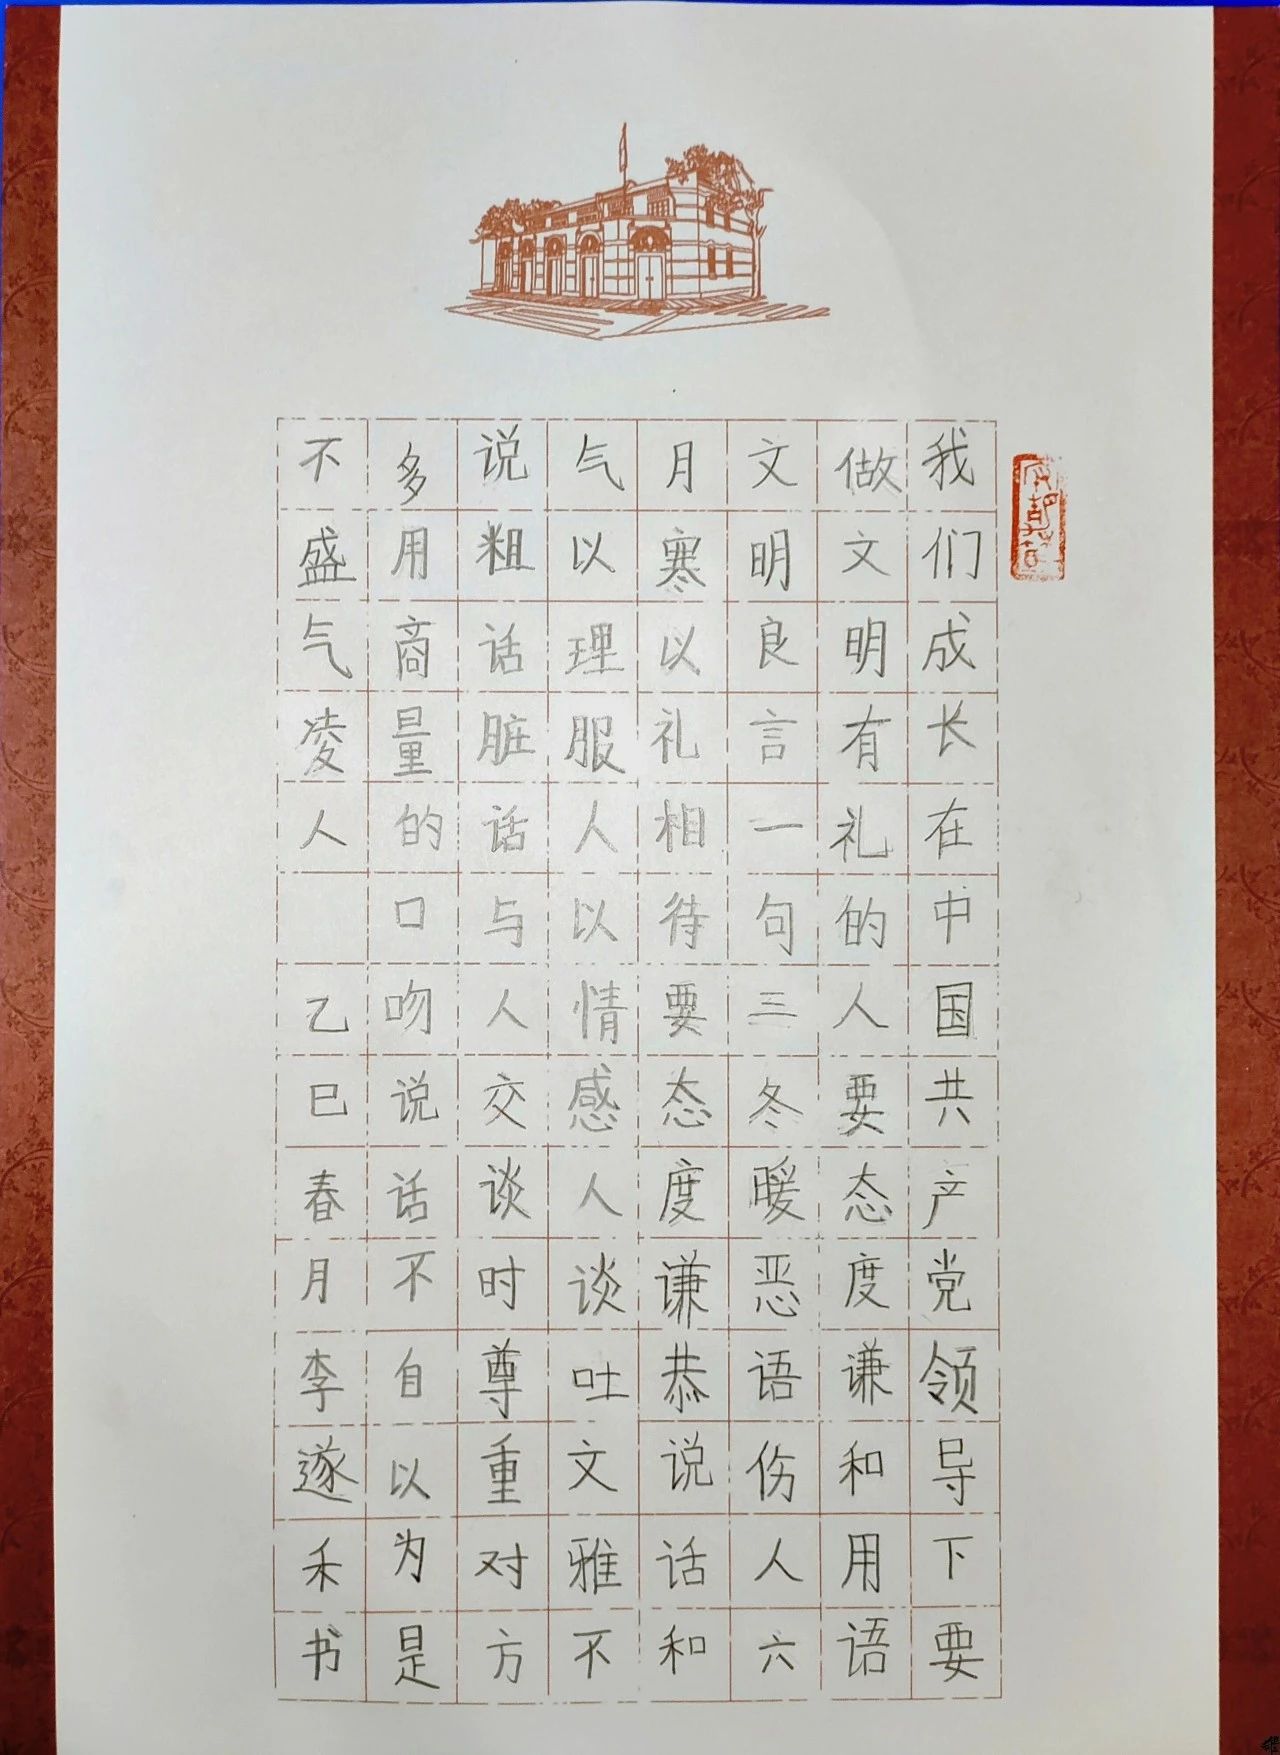 我们成长在中国共产党领导下要
做文明有礼的人要态度谦和用语
文明良言一句三冬暖恶语伤人六
月寒以礼相待要态度谦恭说话和
气以理服人以情感人谈吐文雅不
说粗话脏话与人交谈时尊重对方
多用商量的口吻说话不自以为是
不盛气凌人 乙巳春月李遂禾书